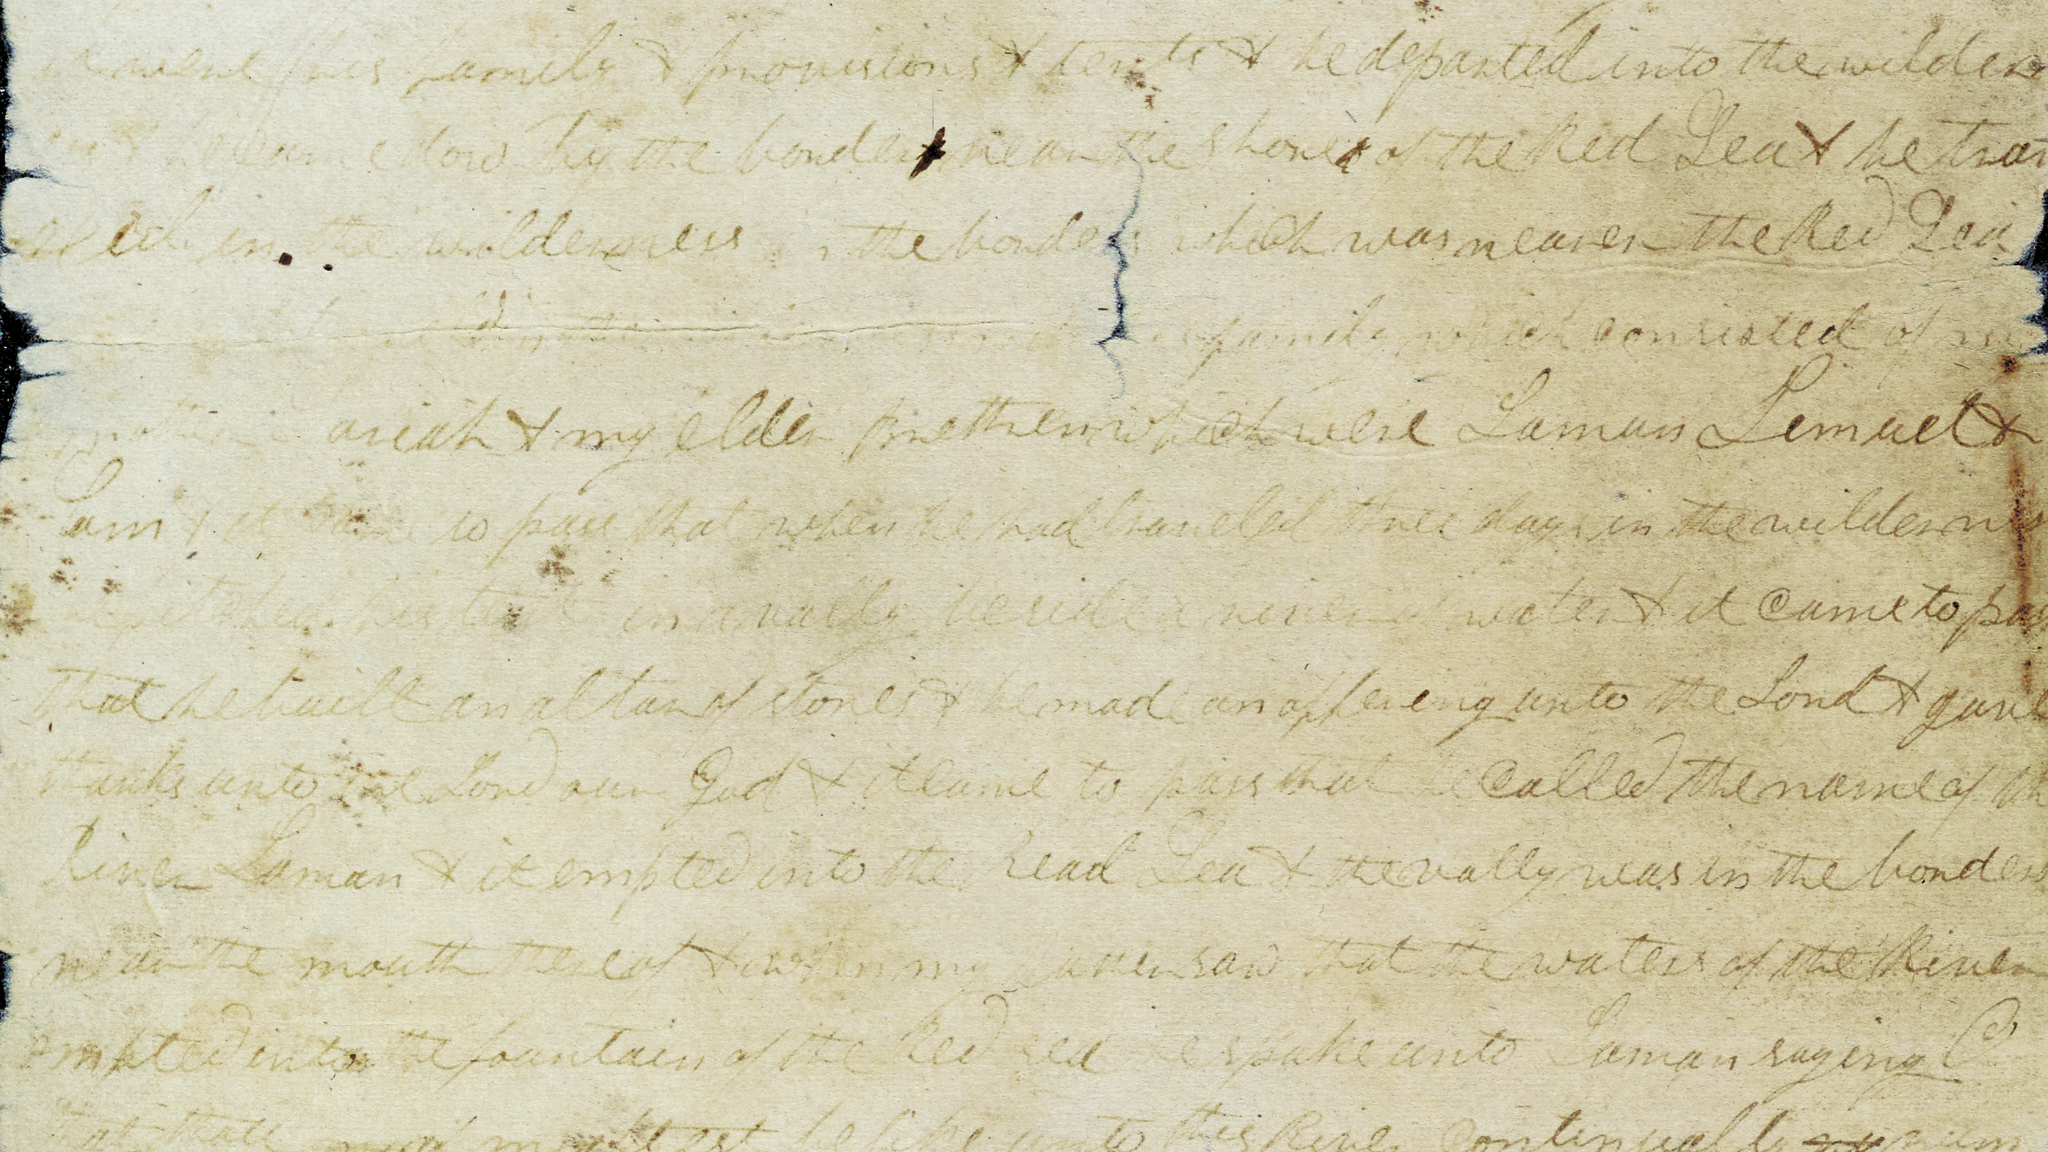 it were his family & provisions & tents & he departed into the wildern
ess & he came down by the borders near the shore of the Red Sea & he trav
eled in the wilderness in the borders which was nearer the Red Sea
family which consisted of my
mother ariah & my elder Brethren which were Laman Lemuel &
Sam & it came to pass that when he had traveled three days in the wilderness
he pitched his tent in a vally beside a river of water & it came to pass
that he built an altar of stones & he made an offering unto the Lord & gave
thanks unto the Lord our God & it came to pass that he called the name of the
River Laman & it empted into the read Sea & the vally was in the borders
near the mouth thereof & when my saw that the waters of the River
empted into the fountain of the Red sea he spake unto Laman saying O
that thou mightest be like unto this River continually